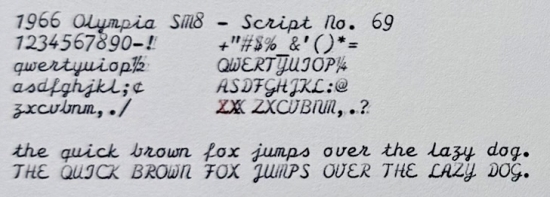 1966 Olympia SM8 - Script No. 69
1234567890-! +"#$%_&'()*=
qwertyuiop½ QWERTYUIOP¼
asdfghjkl;¢ ASDFGHJKL:@
zxcvbnm,./ ZXX ZXCVBNM,.?
the quick brown fox jumps over the lazy dog.
THE QUICK BROWN FOX JUMPS OVER THE LAZY DOG.